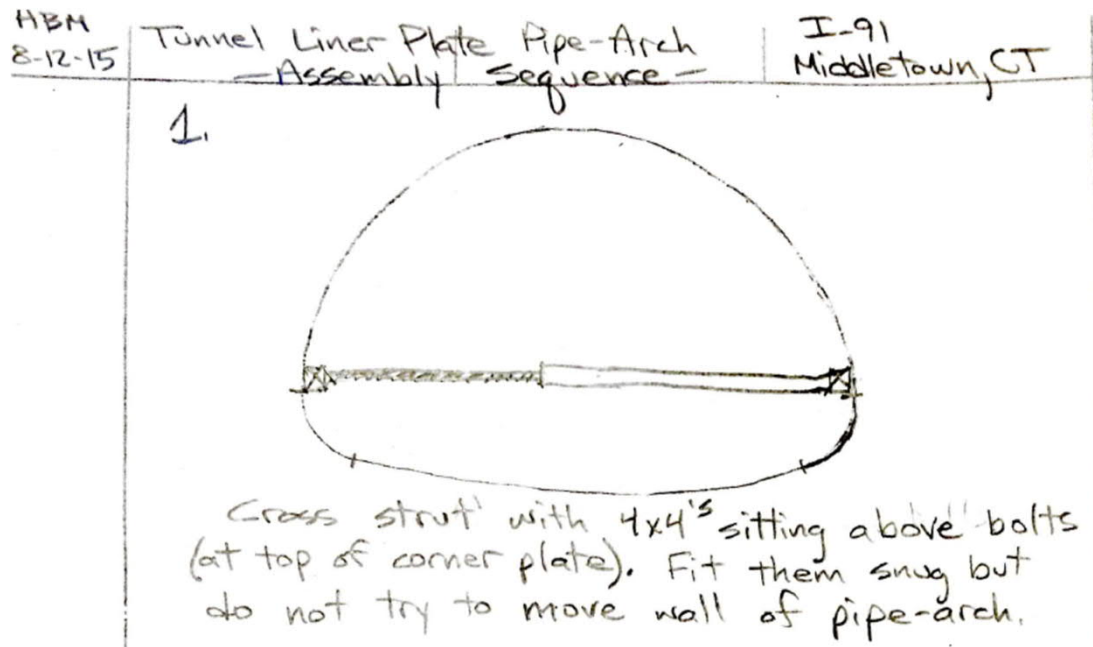 HBM
8-12-15
Tunnel Liner Plate Pipe-Arch
-Assembly Sequence-
I-91
Middletown, CT
1.
Cross strut with 4x4's sitting above bolts
(at top of corner plate). Fit them snug but
do not try to move wall of pipe-arch.